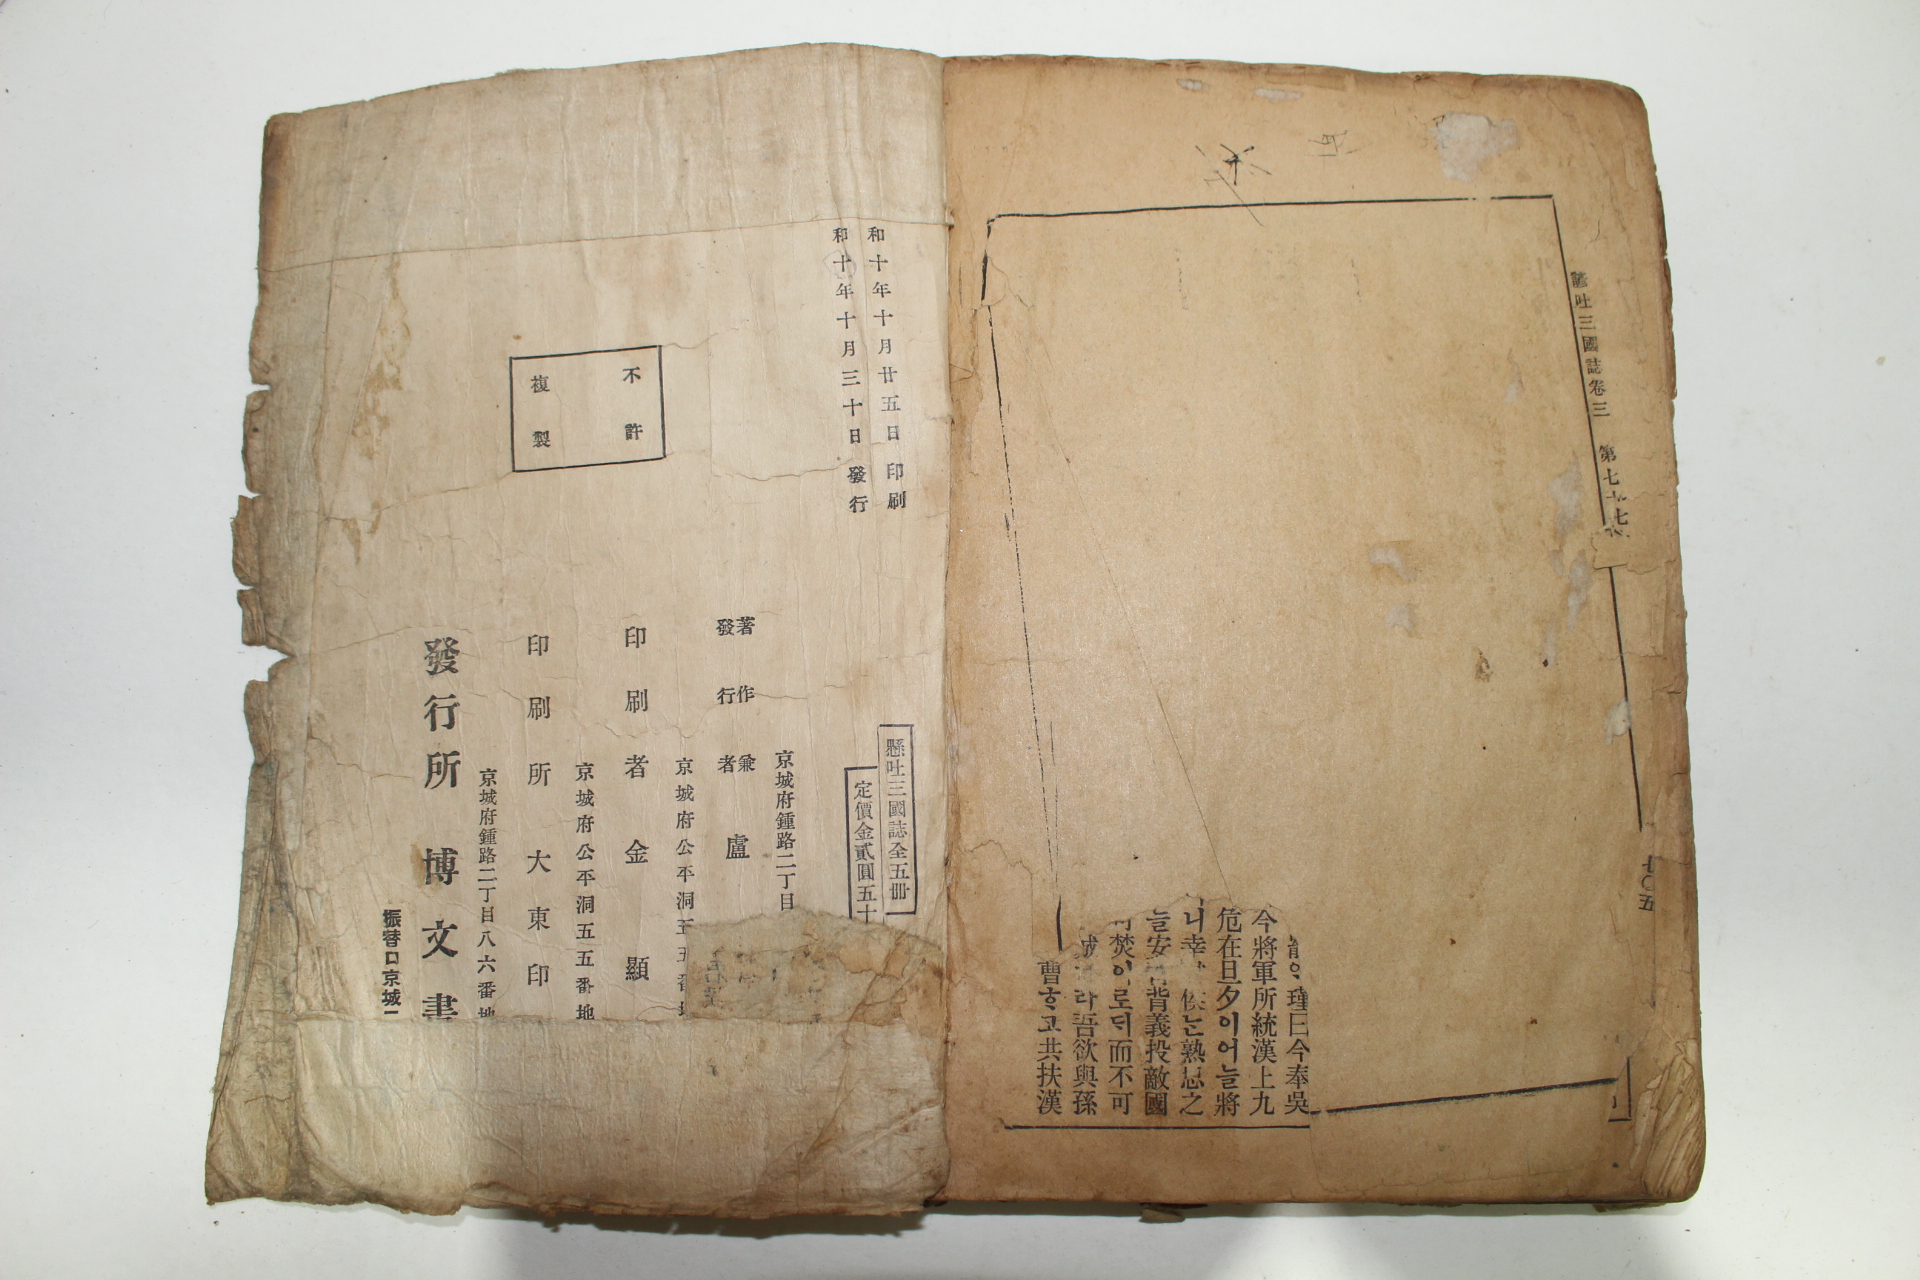 諺吐三國誌卷三 第七十七
七〇五
瑾曰今奉吳
今將軍所統漢上九
危在旦夕이어늘將
니幸 侯는熟思之
늘安 背義投敵國
焚이로되而不可
城 라吾欲與孫
曹하고共扶漢
和十年十月廿五日 印刷
和十年十月三十日 發行
懸吐三國誌全五册
定價金貳圓五十
不許
複製
京城府鍾路二丁目
著作兼
發行者 盧
京城府公平洞五五番地
印刷者 金 顯
京城府公平洞五五番地
印刷所 大東印
京城府鍾路二丁目八六番地
發行所 博文書
振替口京城二